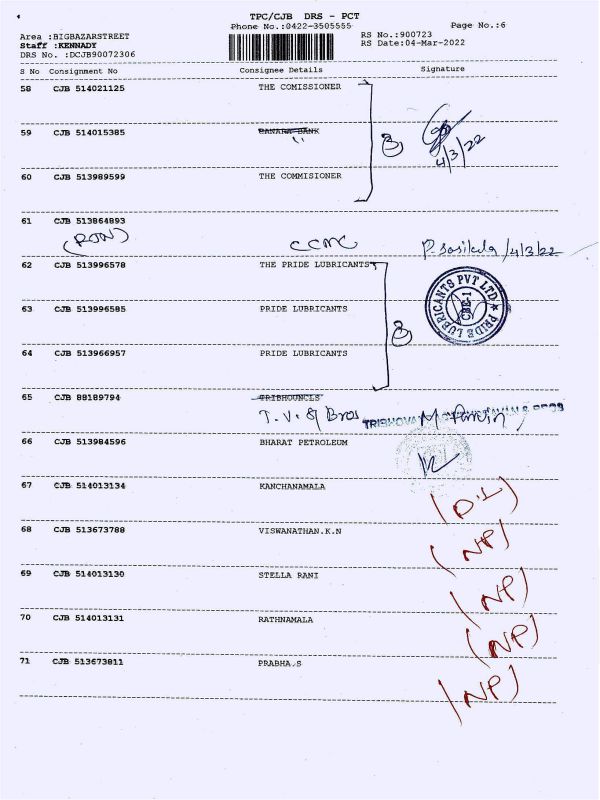 TPC/CJB DRS - PCT
Phone No.:0422-3505555 Page No.:6
Area :BIGBAZARSTREET RS No.:900723
Staff :KENNADY RS Date:04-Mar-2022
DRS No. :DCJB90072306
S No Consignment No Consignee Details Signature
58 CJB 514021125 THE COMISSIONER
59 CJB 514015385 CANARA BANK
3
4/3/22
60 CJB 513989599 THE COMMISIONER
61 CJB 513864893
CCMC P. Sasikala/4/3/22
62 CJB 513996578 THE PRIDE LUBRICANTS
PRIDE LUBRICANTS PVT LTD
CBE-1
63 CJB 513996585 PRIDE LUBRICANTS
3
64 CJB 513966957 PRIDE LUBRICANTS
65 CJB 88189794 TRIBHOUNCLS
T.V. & Bros TRIBHOVA
66 CJB 513984596 BHARAT PETROLEUM
67 CJB 514013134 KANCHANAMALA
(D.L)
68 CJB 513673788 VISWANATHAN.K.N
(NP)
69 CJB 514013130 STELLA RANI
(NP)
70 CJB 514013131 RATHNAMALA
(NP)
71 CJB 513673811 PRABHA,S
(NP)